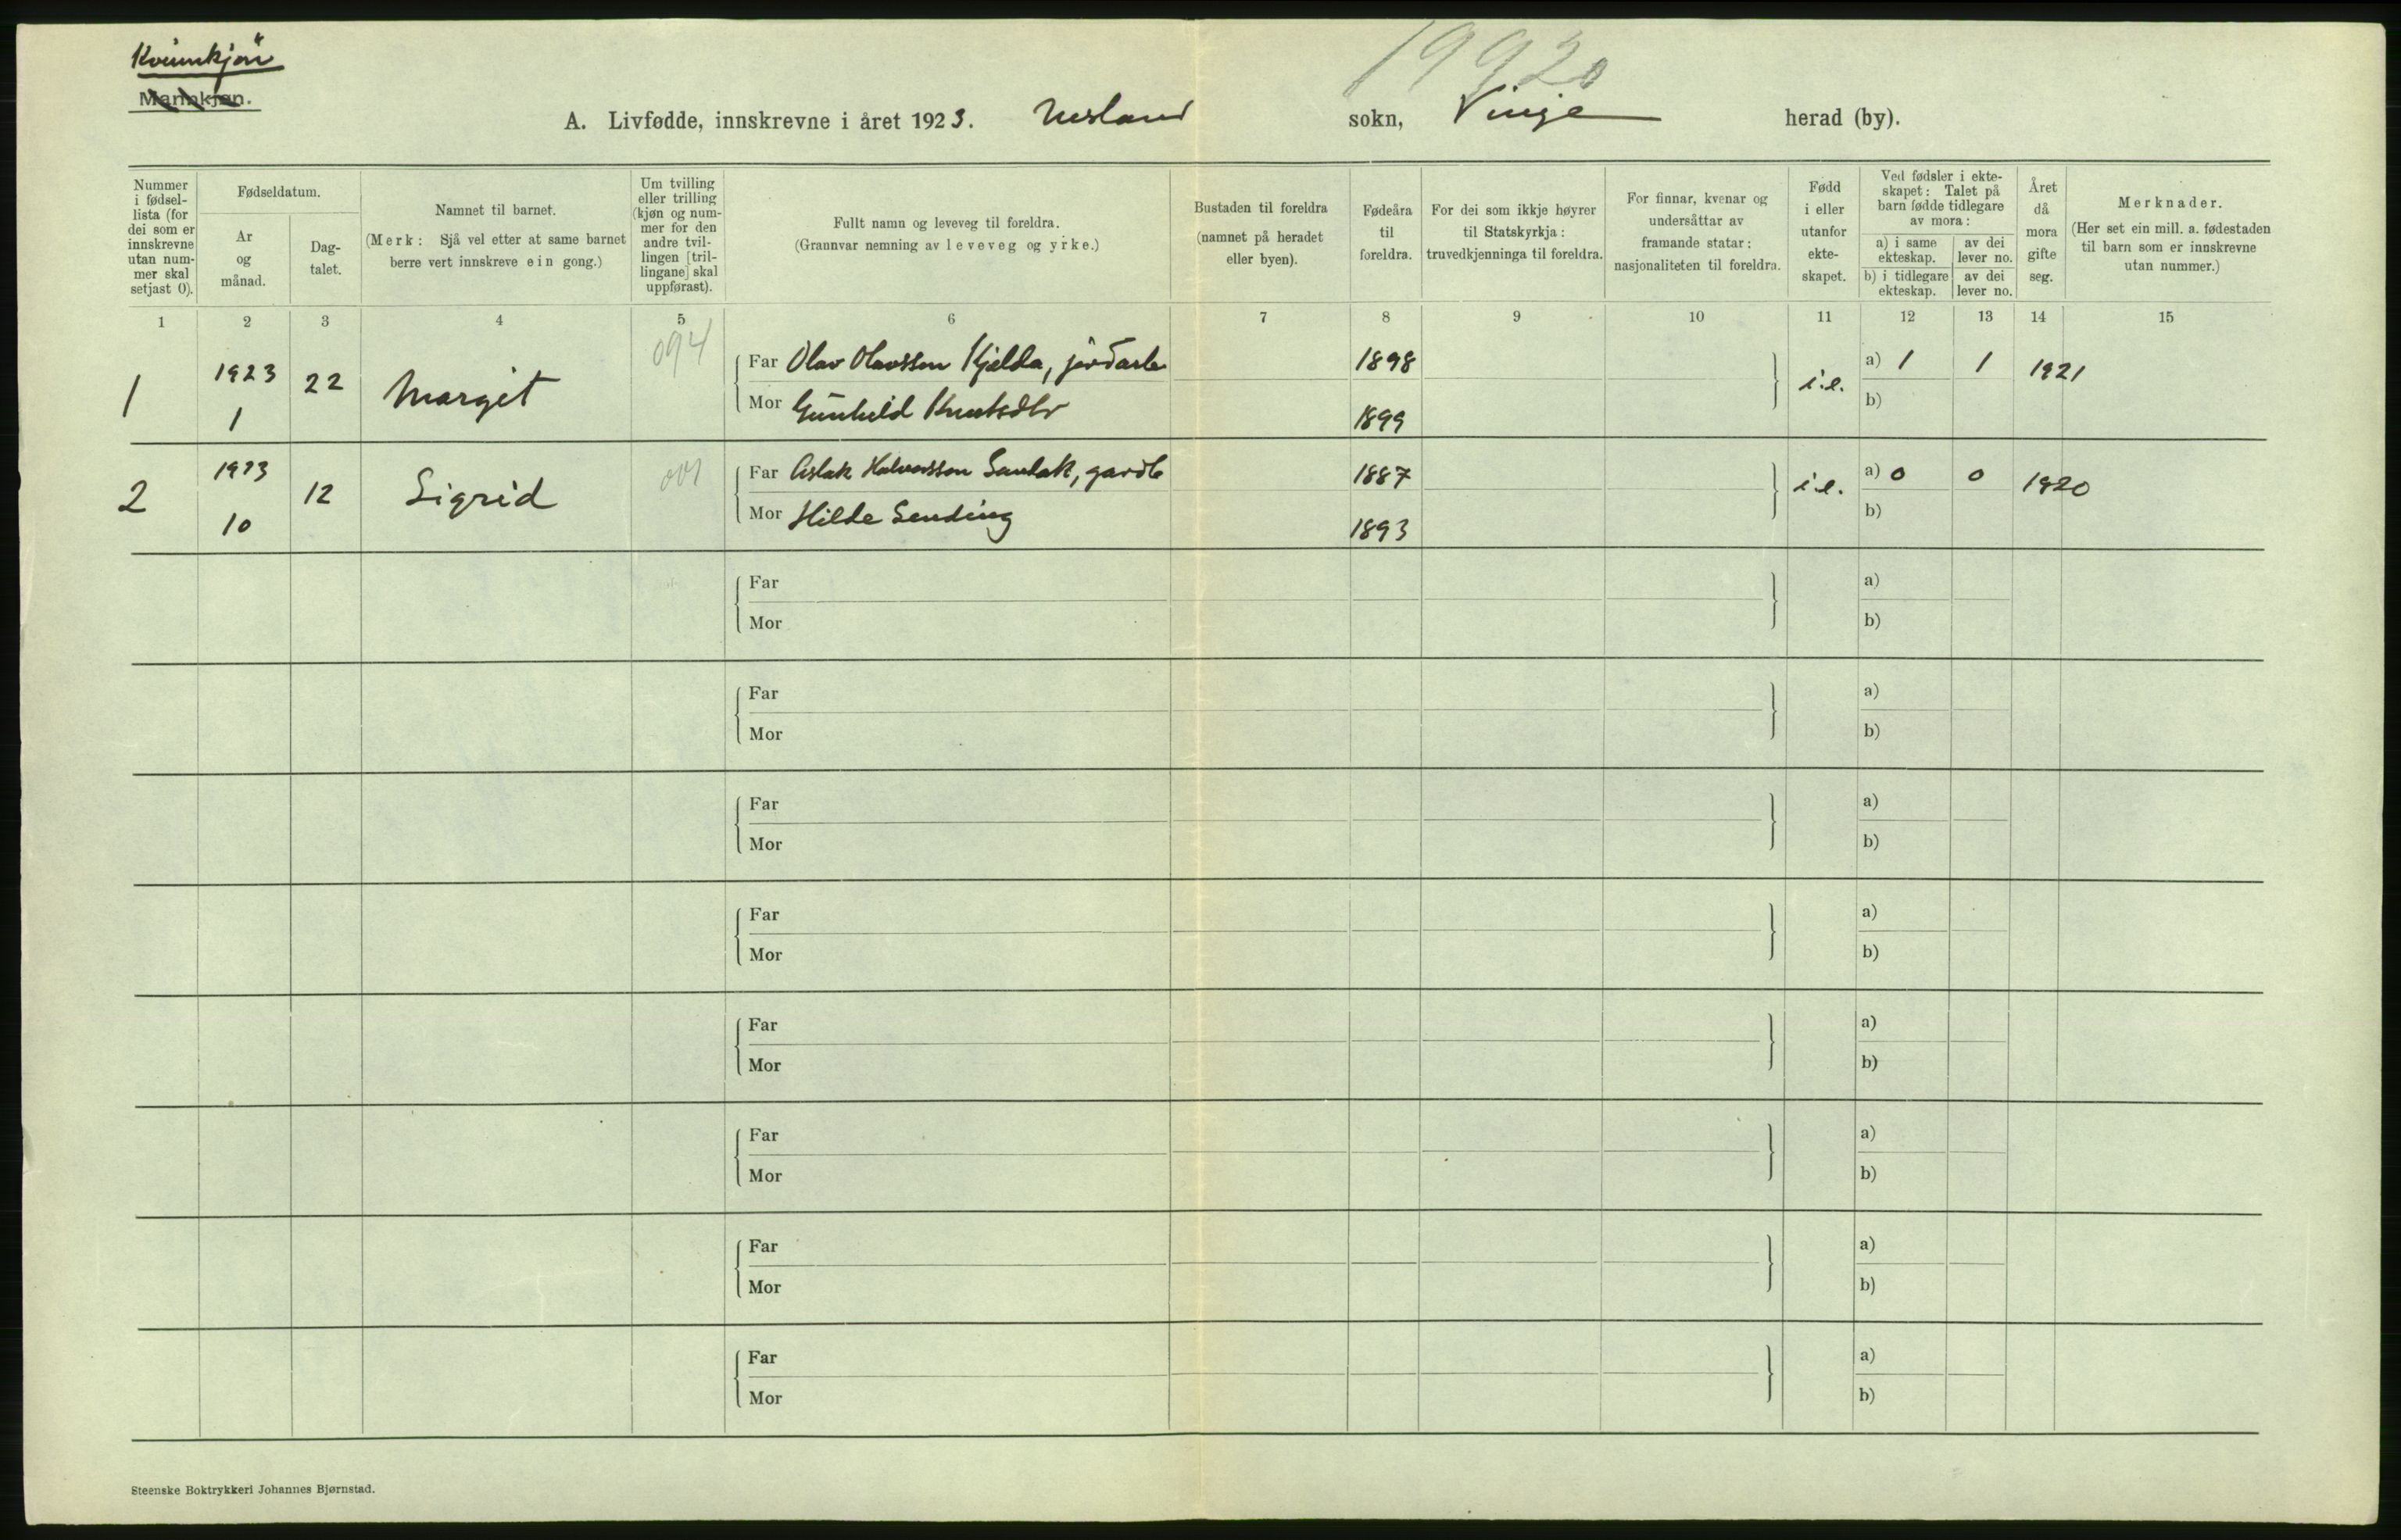 Kvinnkjön
Mannkjøn.
19920
A. Livfødde, innskrevne i året 1923. Nesland sokn, Vinje herad (by).
Nummer i fødsel-lista (for dei som er innskrevne utan num-mer skal setjast 0).
Fødseldatum.
Ar og månad.
Dag-talet.
Namnet til barnet.
(Merk: Sjå vel etter at same barnet berre vert innskreve ein gong.)
Um tvilling eller trilling (kjøn og num-mer for den andre tvil-lingen [tril-lingane] skal uppførast).
Fullt namn og leveveg til foreldra.
(Grannvar nemning av leveveg og yrke.)
Bustaden til foreldra (namnet på heradet eller byen).
Fødeåra til foreldra.
For dei som ikkje høyrer til Statskyrkja: truvedkjenninga til foreldra.
For finnar, kvenar og undersåttar av framande statar: nasjonaliteten til foreldra.
Fødd i eller utanfor ekte-skapet.
Ved fødsler i ekte-skapet: Talet på barn fødde tidlegare av mora:
a) i same ekteskap.
av dei lever no.
b) i tidlegare ekteskap.
av dei lever no.
Året då mora gifte seg.
Merknader.
(Her set ein mill. a. fødestaden til barn som er innskrevne utan nummer.)
1 2 3 4 5 6 7 8 9 10 11 12 13 14 15
094
1 1923 1 22 Margit
Far Olav Olavsson Kjelda, jordarb 1898 i.e. a) 1 1 1921
Mor Gunhild Knutsdtr 1899 b)
001
2 1923 10 12 Sigrid
Far Aslak Halvorsson Sandok, gardb 1887 i.e. a) 0 0 1920
Mor Hilde Sending 1893 b)
Far a)
Mor b)
Far a)
Mor b)
Far a)
Mor b)
Far a)
Mor b)
Far a)
Mor b)
Far a)
Mor b)
Far a)
Mor b)
Far a)
Mor b)
Steenske Boktrykkeri Johannes Bjørnstad.